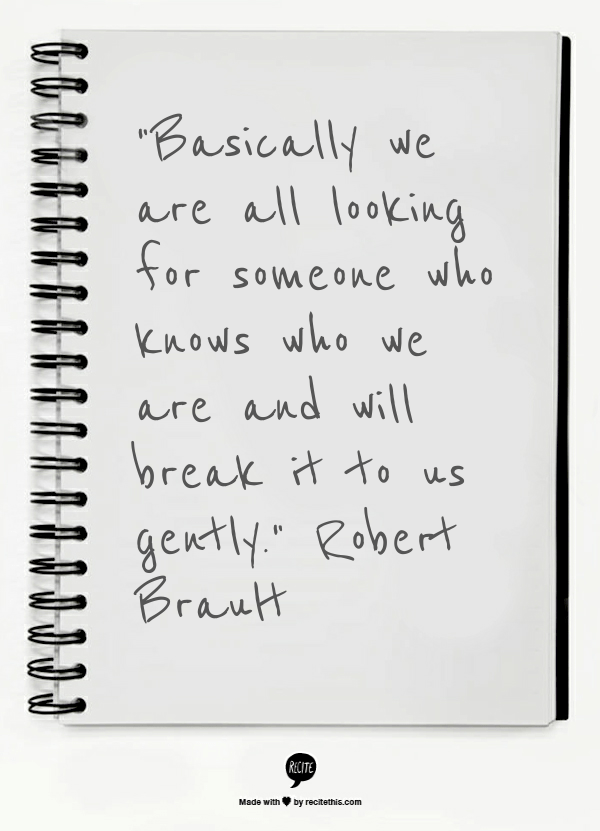 "Basically we
are all looking
for someone who
knows who we
are and will
break it to us
gently." Robert
Brault
RECITE
Made with ♥ by recitethis.com